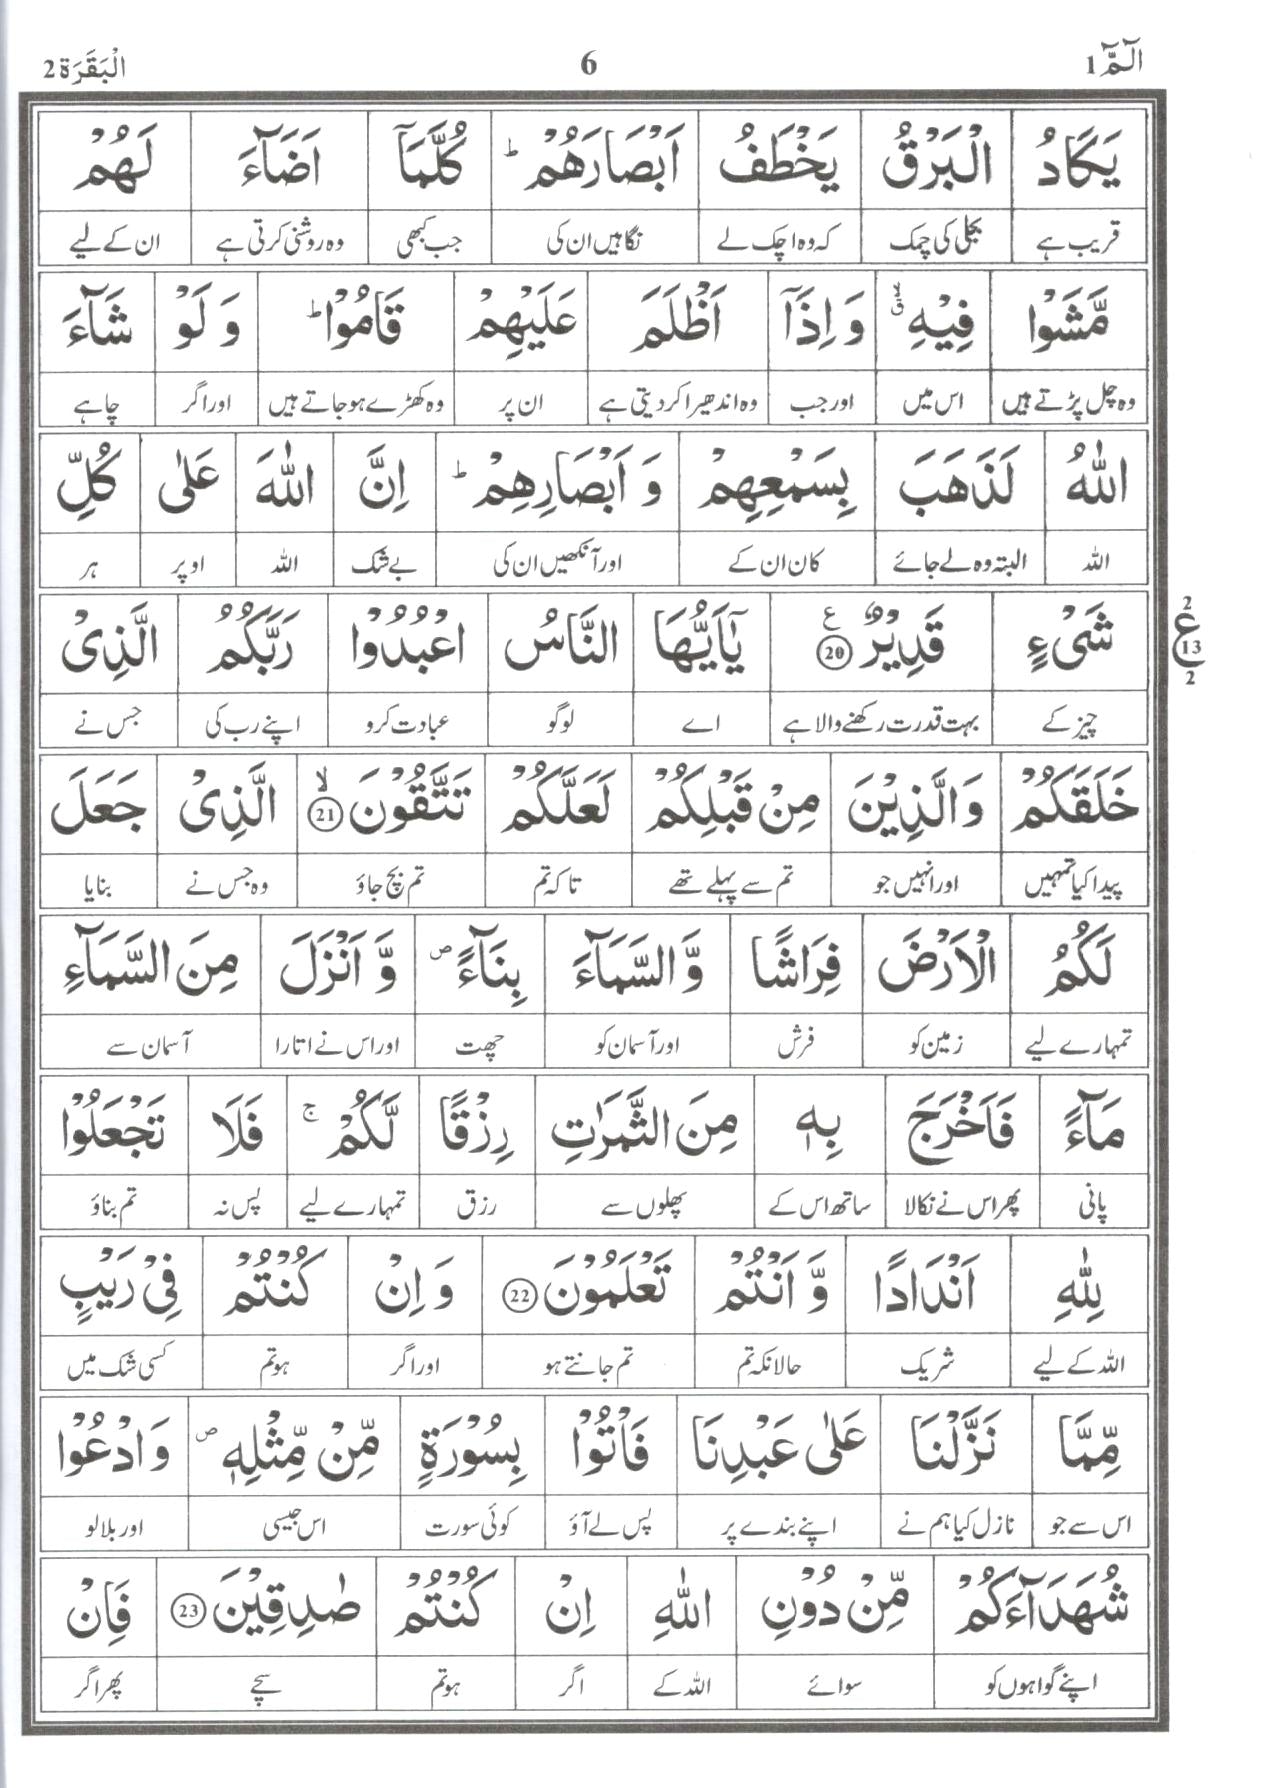 الٓمّٓ 1 6 اَلْبَقَرَة 2
يَكَادُ الْبَرْقُ يَخْطَفُ اَبْصَارَهُمْ ؕ كُلَّمَآ اَضَآءَ لَهُمْ
قریب ہے بجلی کی چمک کہ وہ اچک لے نگاہیں ان کی جب کبھی وہ روشنی کرتی ہے ان کے لیے
مَّشَوْا فِيْهِ ۙۗ وَ اِذَآ اَظْلَمَ عَلَيْهِمْ قَامُوْا ؕ وَ لَوْ شَآءَ
وہ چل پڑتے ہیں اس میں اور جب وہ اندھیرا کر دیتی ہے ان پر وہ کھڑے ہو جاتے ہیں اور اگر چاہے
اللّٰهُ لَذَهَبَ بِسَمْعِهِمْ وَ اَبْصَارِهِمْ ؕ اِنَّ اللّٰهَ عَلٰى كُلِّ
اللہ البتہ وہ لے جائے کان ان کے اور آنکھیں ان کی بے شک اللہ اوپر ہر
شَىْءٍ قَدِيْرٌ ع 20 يٰٓاَيُّهَا النَّاسُ اعْبُدُوْا رَبَّكُمُ الَّذِىْ
2 ع 13 2
چیز کے بہت قدرت رکھنے والا ہے اے لوگو عبادت کرو اپنے رب کی جس نے
خَلَقَكُمْ وَالَّذِيْنَ مِنْ قَبْلِكُمْ لَعَلَّكُمْ تَتَّقُوْنَ ۙ 21 الَّذِىْ جَعَلَ
پیدا کیا تمہیں اور انہیں جو تم سے پہلے تھے تاکہ تم تم بچ جاؤ وہ جس نے بنایا
لَكُمُ الْاَرْضَ فِرَاشًا وَّ السَّمَآءَ بِنَآءً ۪ وَّ اَنْزَلَ مِنَ السَّمَآءِ
تمہارے لیے زمین کو فرش اور آسمان کو چھت اور اس نے اتارا آسمان سے
مَآءً فَاَخْرَجَ بِهٖ مِنَ الثَّمَرٰتِ رِزْقًا لَّكُمْ ۚ فَلَا تَجْعَلُوْا
پانی پھر اس نے نکالا ساتھ اس کے پھلوں سے رزق تمہارے لیے پس نہ تم بناؤ
لِلّٰهِ اَنْدَادًا وَّ اَنْتُمْ تَعْلَمُوْنَ 22 وَ اِنْ كُنْتُمْ فِىْ رَيْبٍ
اللہ کے لیے شریک حالانکہ تم تم جانتے ہو اور اگر ہو تم کسی شک میں
مِّمَّا نَزَّلْنَا عَلٰى عَبْدِنَا فَاْتُوْا بِسُوْرَةٍ مِّنْ مِّثْلِهٖ ۪ وَ ادْعُوْا
اس سے جو نازل کیا ہم نے اپنے بندے پر پس لے آؤ کوئی سورت اس جیسی اور بلا لو
شُهَدَآءَكُمْ مِّنْ دُوْنِ اللّٰهِ اِنْ كُنْتُمْ صٰدِقِيْنَ 23 فَاِنْ
اپنے گواہوں کو سوائے اللہ کے اگر ہو تم سچے پھر اگر